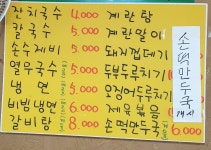 잔치국수 4.000 계란탕
칼국수 5.000 계란말이
손수제비 5.000 돼지껍데기
열무국수 5.000 두부두루치기
냉면 5.000 오징어두루치기
비빔냉면 6.000 제육볶음
갈비탕 8.000 손떡만두국 6.000
손떡만두국
개시